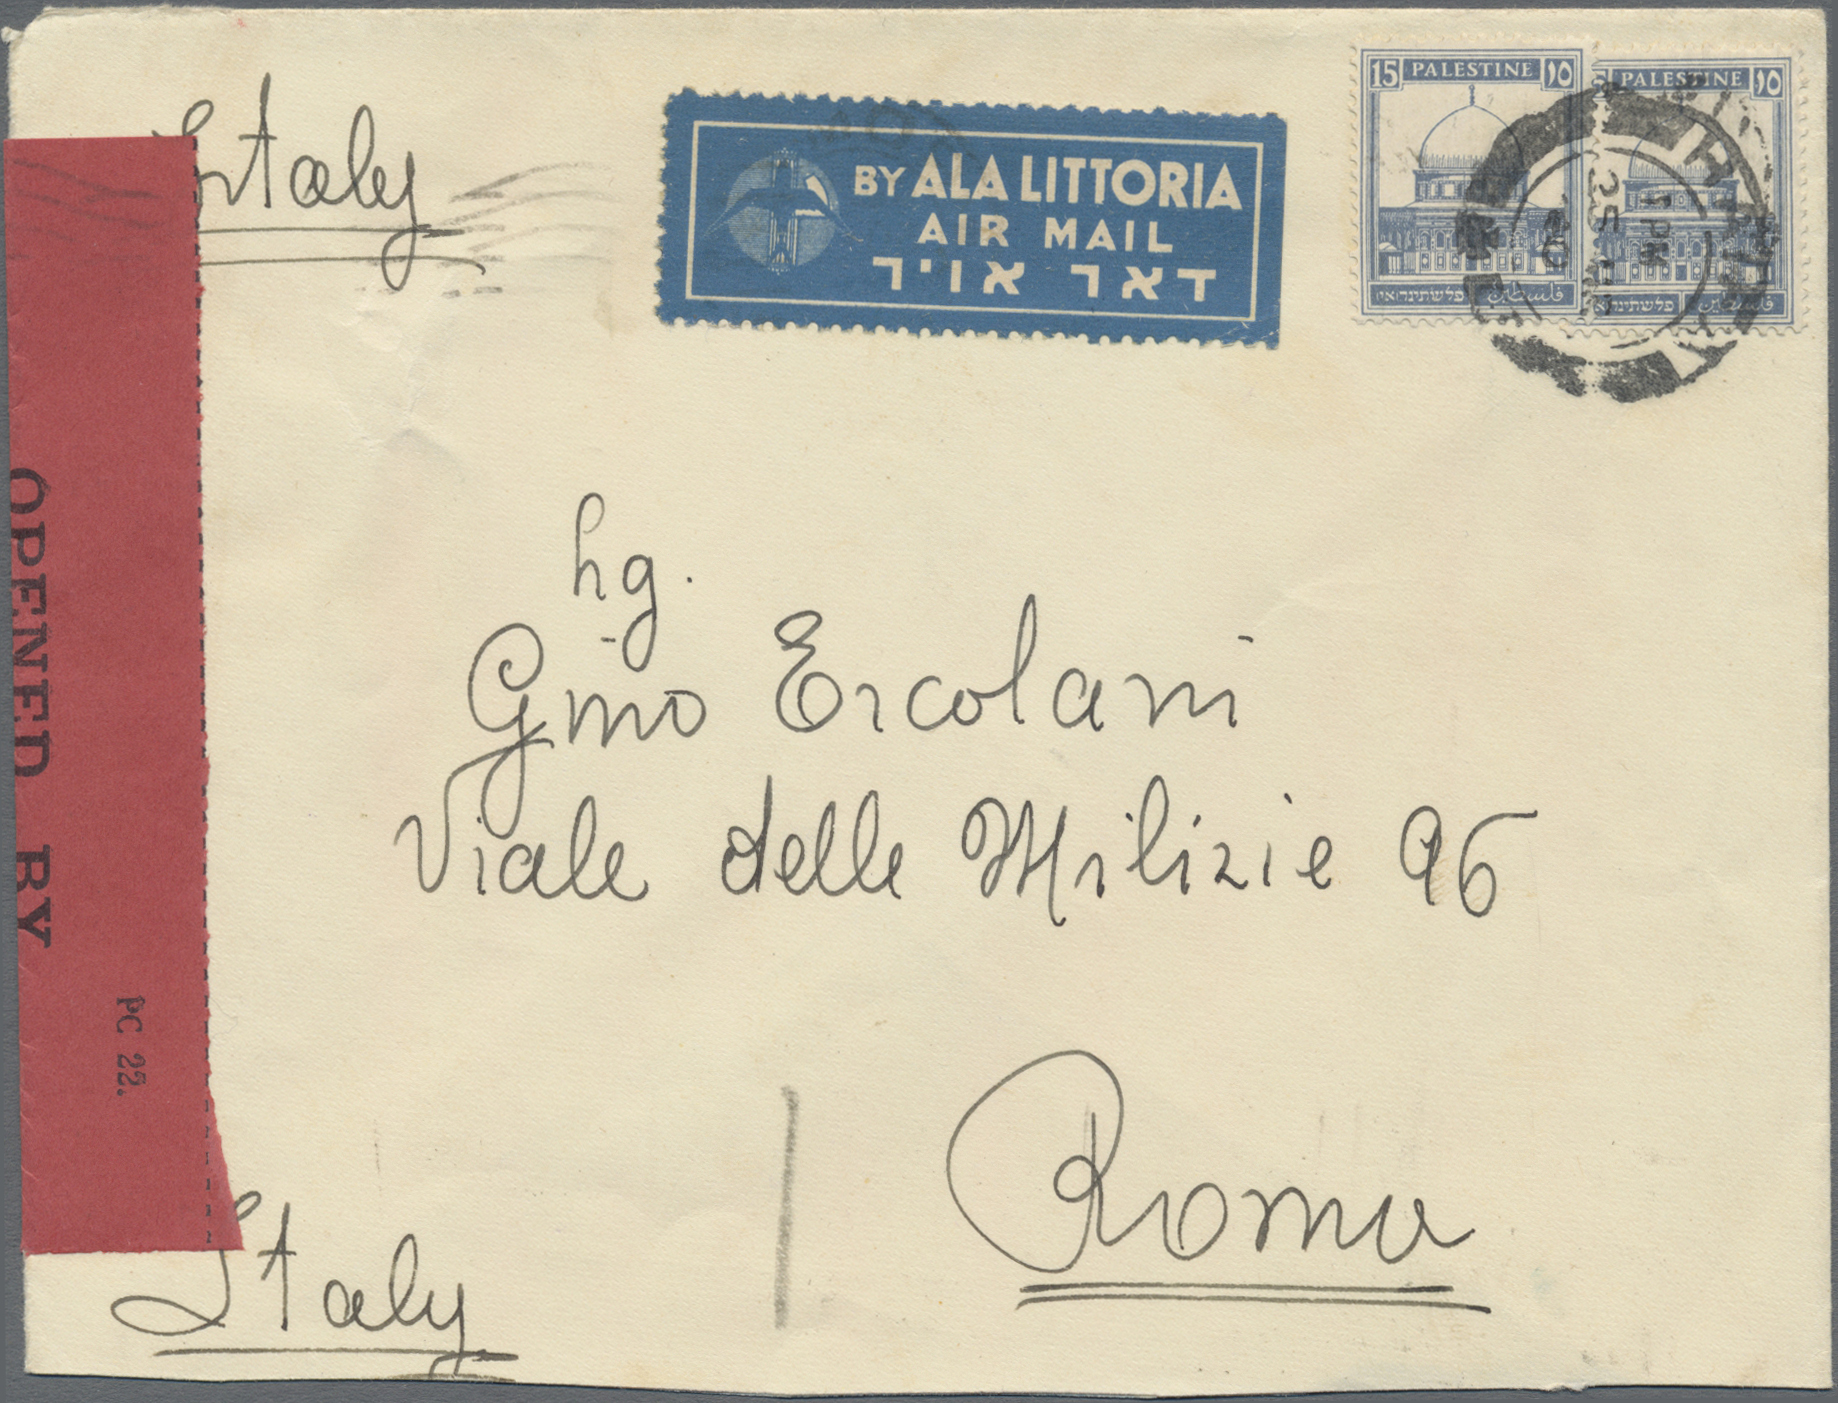 Italy
BY ALA LITTORIA
AIR MAIL
דאר אויר
15 PALESTINE ١٥
فلسطين פלשתינה (א״י)
PALESTINE ١٥
فلسطين פלשתינה (א״י)
1 PM
OPENED BY
PC 22.
Ing.
Gino Ercolani
Viale delle Milizie 96
Roma
Italy